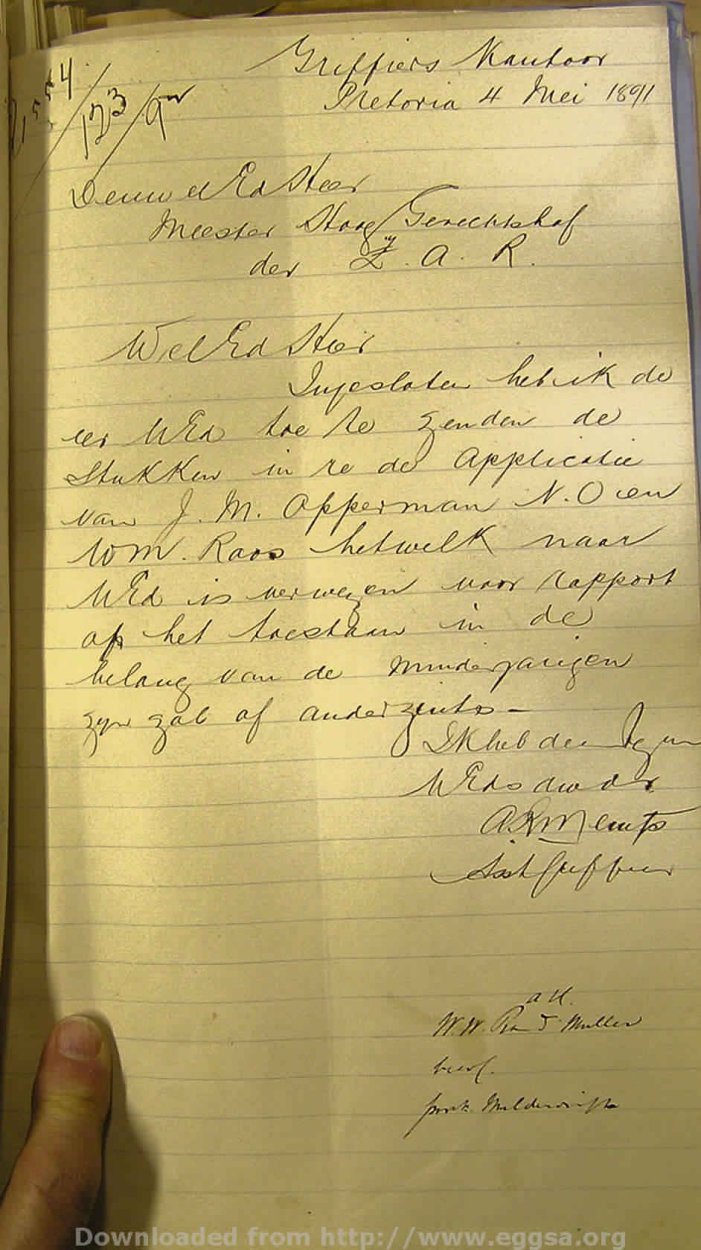 Griffiers Kantoor
Pretoria 4 Mei 1891
123/91
Den Wel Ed Heer
Meester Hoog Gerechtshof
der Z. A. R.
Wel Ed Heer
Ingesloten heb ik de
eer WEd toe te zenden de
Stukken in re de applicatie
van J. M. Opperman N.O en
Wm. Roos hetwelk naar
WEd is verwezen voor rapport
of het toestaan in de
belang van de minderjarigen
zyn zal of anderzints -
Ik heb de eer te zyn
WEds dw dr
Asst Griffier
W.W. Muller
Muldersdrift
Downloaded from http://www.eggsa.org